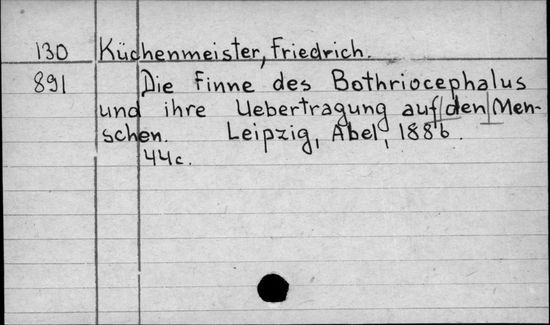 130 Küchenmeister, Friedrich.
891 Die Finne des Bothriocephalus
und ihre Uebertragung auf den Men-
schen. Leipzig, Abel, 1886.
44c.